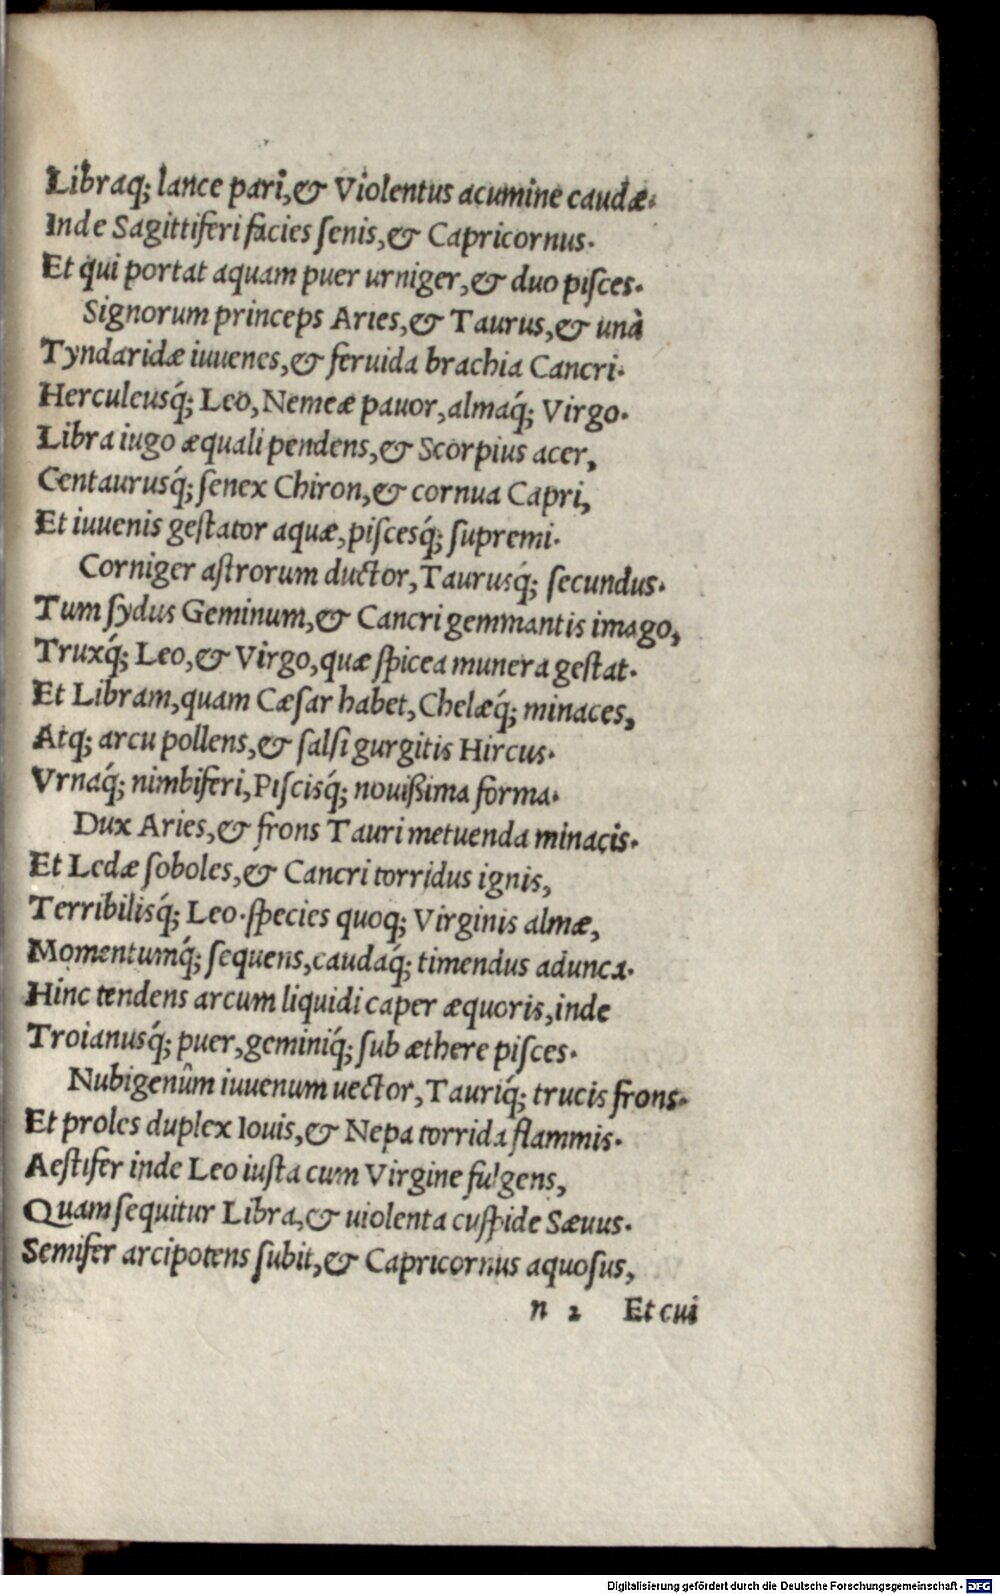 Libraq; lance pari,& Violentus acumine caudæ.
Inde Sagittiferi facies ſenis,& Capricornus.
Et qui portat aquam puer urniger,& duo piſces.
Signorum princeps Aries,& Taurus,& unà
Tyndaridæ iuuenes,& feruida brachia Cancri.
Herculeusq́; Leo, Nemeæ pauor, almaq́; Virgo.
Libra iugo æquali pendens,& Scorpius acer,
Centaurusq́; ſenex Chiron,& cornua Capri,
Et iuuenis geſtator aquæ, piſcesq́; ſupremi.
Corniger aſtrorum ductor, Taurusq́; ſecundus.
Tum ſydus Geminum,& Cancri gemmantis imago,
Truxq́; Leo,& Virgo, quæ ſpicea munera geſtat.
Et Libram, quam Cæſar habet, Chelæq́; minaces,
Atq; arcu pollens,& ſalſi gurgitis Hircus.
Vrnaq́; nimbiferi, Piſcisq́; nouißima forma.
Dux Aries,& frons Tauri metuenda minacis.
Et Ledæ ſoboles,& Cancri torridus ignis,
Terribilisq́; Leo. ſpecies quoq; Virginis almæ,
Momentumq́; ſequens, caudaq́; timendus adunca.
Hinc tendens arcum liquidi caper æquoris, inde
Troianusq́; puer, geminiq́; ſub æthere piſces.
Nubigenûm iuuenum uector, Tauriq́; trucis frons.
Et proles duplex Iouis,& Nepa torrida flammis.
Aeſtifer inde Leo iuſta cum Virgine fulgens,
Quam ſequitur Libra,& uiolenta cuſpide Sæuus.
Semifer arcipotens ſubit,& Capricornus aquoſus,
n 2 Et cui
Digitalisierung gefördert durch die Deutsche Forschungsgemeinschaft - DFG